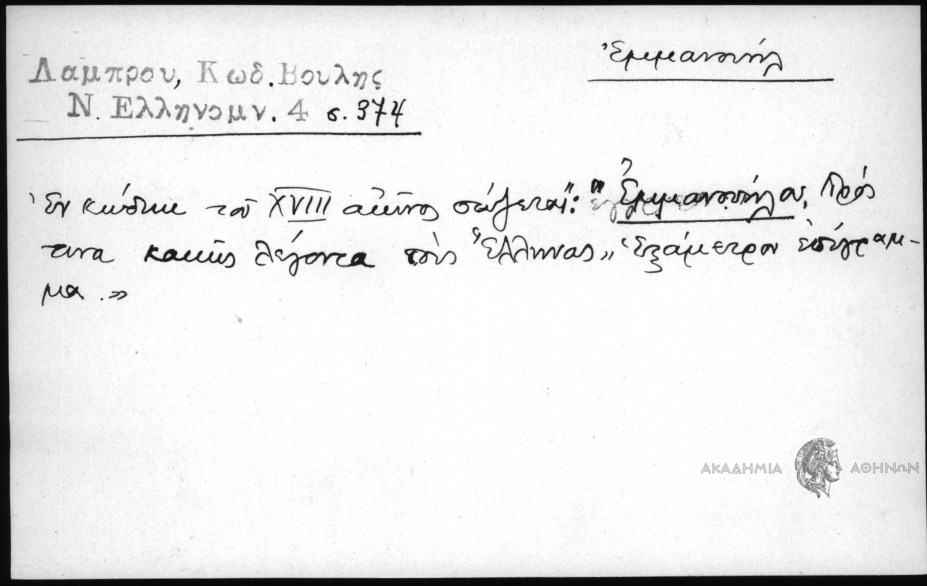 Ἐμμανουήλ
Λαμπρου, Κωδ. Βουλης
Ν. Ελληνομν. 4 σ. 374
Ἐν κώδικι τοῦ XVIII αἰῶνος σώζεται: "Ἐμμανουήλου, Πρός
τινα κακῶς λέγοντα τοὺς Ἕλληνας„ ἑξάμετρον ἐπίγραμ-
μα.»
ΑΚΑΔΗΜΙΑ ΑΘΗΝΩΝ